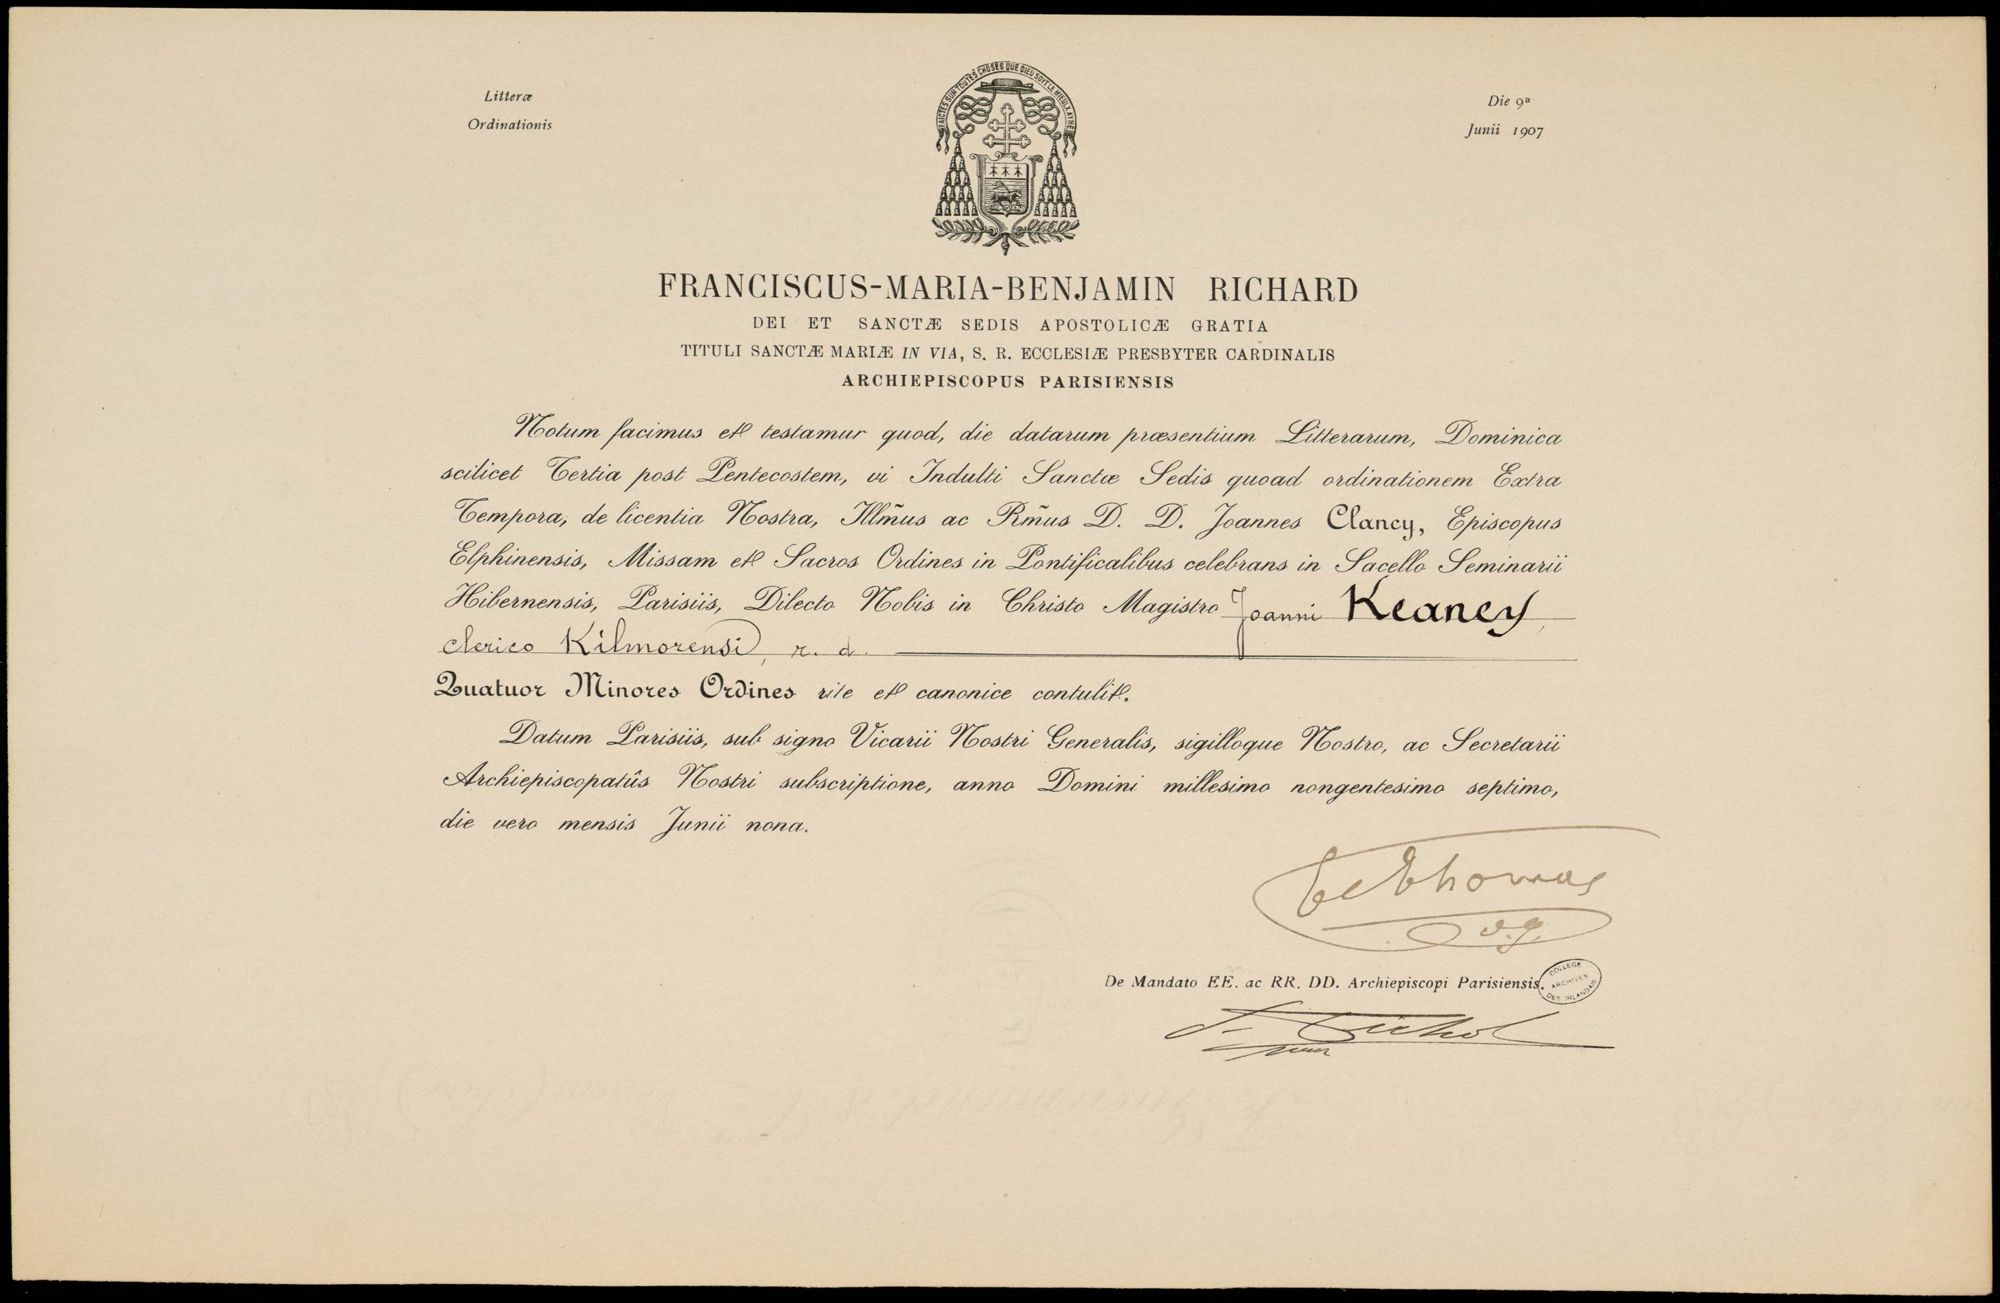 Litteræ
Ordinationis
Die 9ª
Junii 1907
FAICTES SUR TOUTES CHOSES QUE DIEU SOYT LE MIEULX AYMÉ
FRANCISCUS-MARIA-BENJAMIN RICHARD
DEI ET SANCTÆ SEDIS APOSTOLICÆ GRATIA
TITULI SANCTÆ MARIÆ IN VIA, S. R. ECCLESIÆ PRESBYTER CARDINALIS
ARCHIEPISCOPUS PARISIENSIS
Notum facimus et testamur quod, die datarum præsentium Litterarum, Dominica
scilicet Tertia post Pentecostem, vi Indulti Sanctæ Sedis quoad ordinationem Extra
Tempora, de licentia Nostra, Illm̃us ac Rm̃us D. D. Joannes Clancy, Episcopus
Elphinensis, Missam et Sacros Ordines in Pontificalibus celebrans in Sacello Seminarii
Hibernensis, Parisiis, Dilecto Nobis in Christo Magistro Joanni Keaney,
clerico Kilmorensi, r. d.
Quatuor Minores Ordines rite et canonice contulit.
Datum Parisiis, sub signo Vicarii Nostri Generalis, sigilloque Nostro, ac Secretarii
Archiepiscopatûs Nostri subscriptione, anno Domini millesimo nongentesimo septimo,
die vero mensis Junii nona.
Thomas
v.g.
De Mandato EE. ac RR. DD. Archiepiscopi Parisiensis.
COLLEGE
ARCHIVES
DES IRLANDAIS